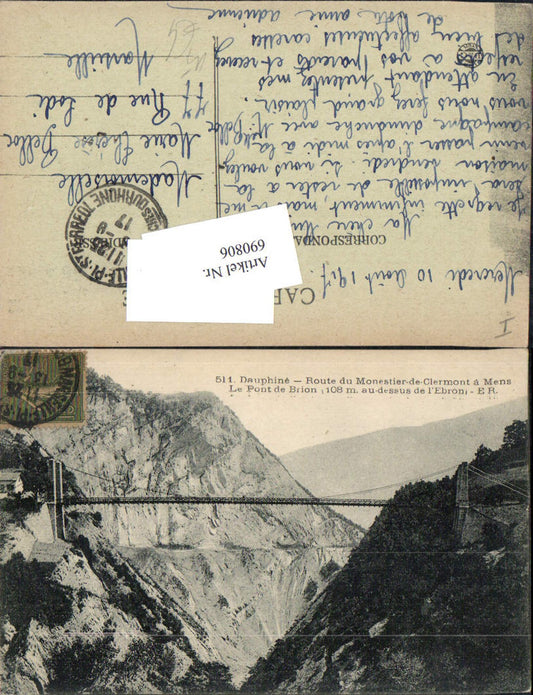 Mercredi 10 Août 1917.
CORRESPONDA
ADRESSE
CAR
Artikel Nr.
690806
Ma chère
Je regrette infiniment, mais il me
sera impossible de rester à la
maison vendredi. Si vous voulez
venir passer l'après midi à la
campagne dimanche avec Mr Bellot
vous nous ferez grand plaisir.
En attendant présentez mes
respects à vos parents et recevez
les bien affectueuses caresses
de votre amie Adrienne
Mademoiselle
Marie Thérèse Bellot
77 Rue de Lodi
Marseille
I
511. Dauphiné — Route du Monestier-de-Clermont à Mens
Le Pont de Brion (108 m. au-dessus de l'Ebron) - E.R.